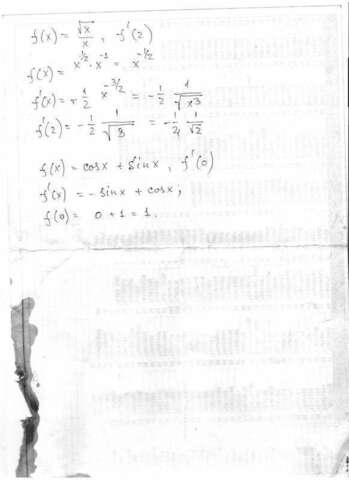 f(x) = √x / x , f'(2)
f(x) = x^(1/2) · x^(-1) = x^(-1/2)
f'(x) = - 1/2 x^(-3/2) = - 1/2 1/√x³
f'(2) = - 1/2 1/√8 = - 1/4 1/√2
f(x) = cosx + sinx , f'(0)
f'(x) = - sinx + cosx ;
f(0) = 0 + 1 = 1 .